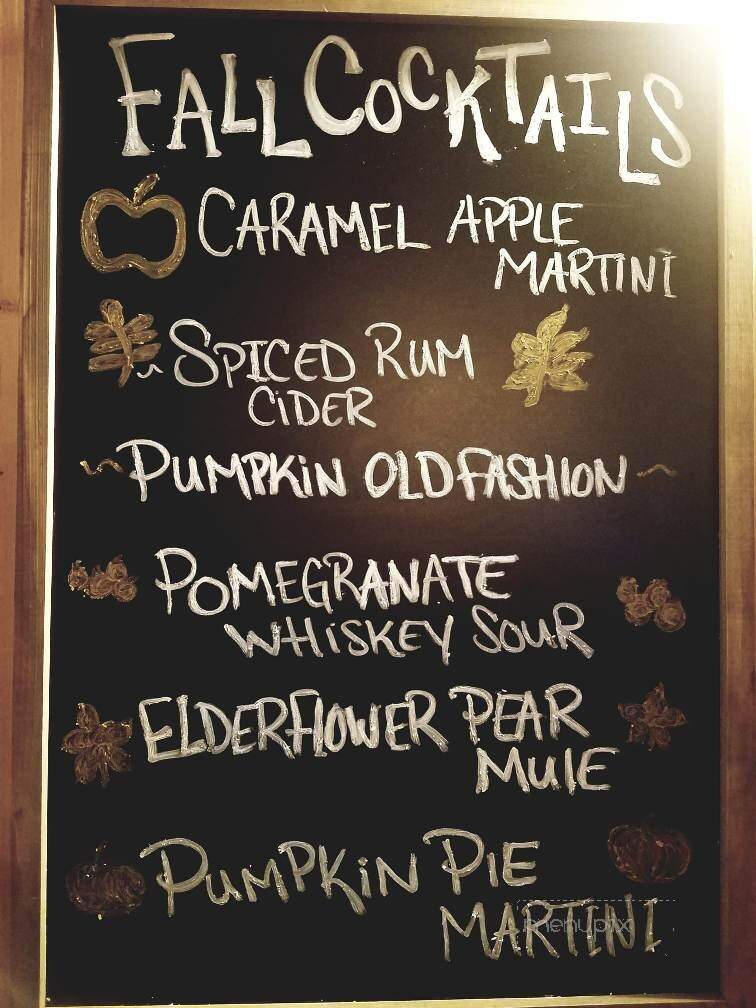 FALL COCKTAILS
CARAMEL APPLE
MARTINI
SPICED RUM
CiDER
PUMPKiN OLD FASHION
POMEGRANATE
WHiSKEY SOUR
ELDERFLOWER PEAR
MULE
PUMPKiN PIE
MARTINI
menupix